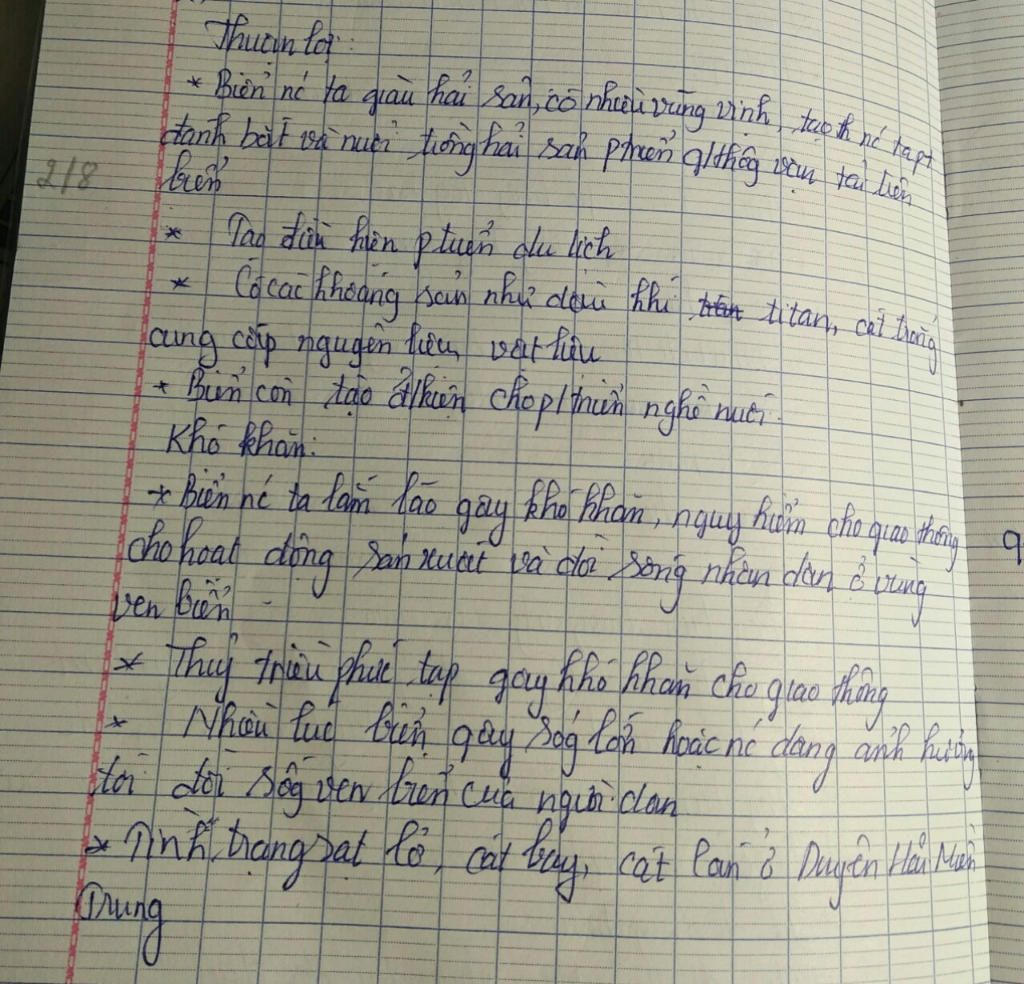 Thuận lợi:
* Biển nc ta giàu hải sản, có nhiều vũng vịnh,
đánh bắt và nuôi trồng hải sản ptriển g/thông vận tải trên
2/8
biển
* Tạo điều kiện ptriển du lịch
* Có các khoáng sản như dầu khí titan, cát trắng
cung cấp nguyên liệu, vật liệu
* Biển còn tạo đ/kiện cho p/triển nghề muối.
Khó khăn:
* Biển nc ta lắm bão gây khó khăn, nguy hiểm cho giao thông
cho hoạt động sản xuất và đời sống nhân dân ở vùng
ven biển
* Thuỷ triều phức tạp gây khó khăn cho giao thông
* Nhiều lúc biển gây sóg lớn hoặc nc dâng ảnh hưởng
tới đời sốg ven biển của người dân
* Tình trạng sạt lở, cát bay, cát lấn ở Duyên Hải Miền
Trung